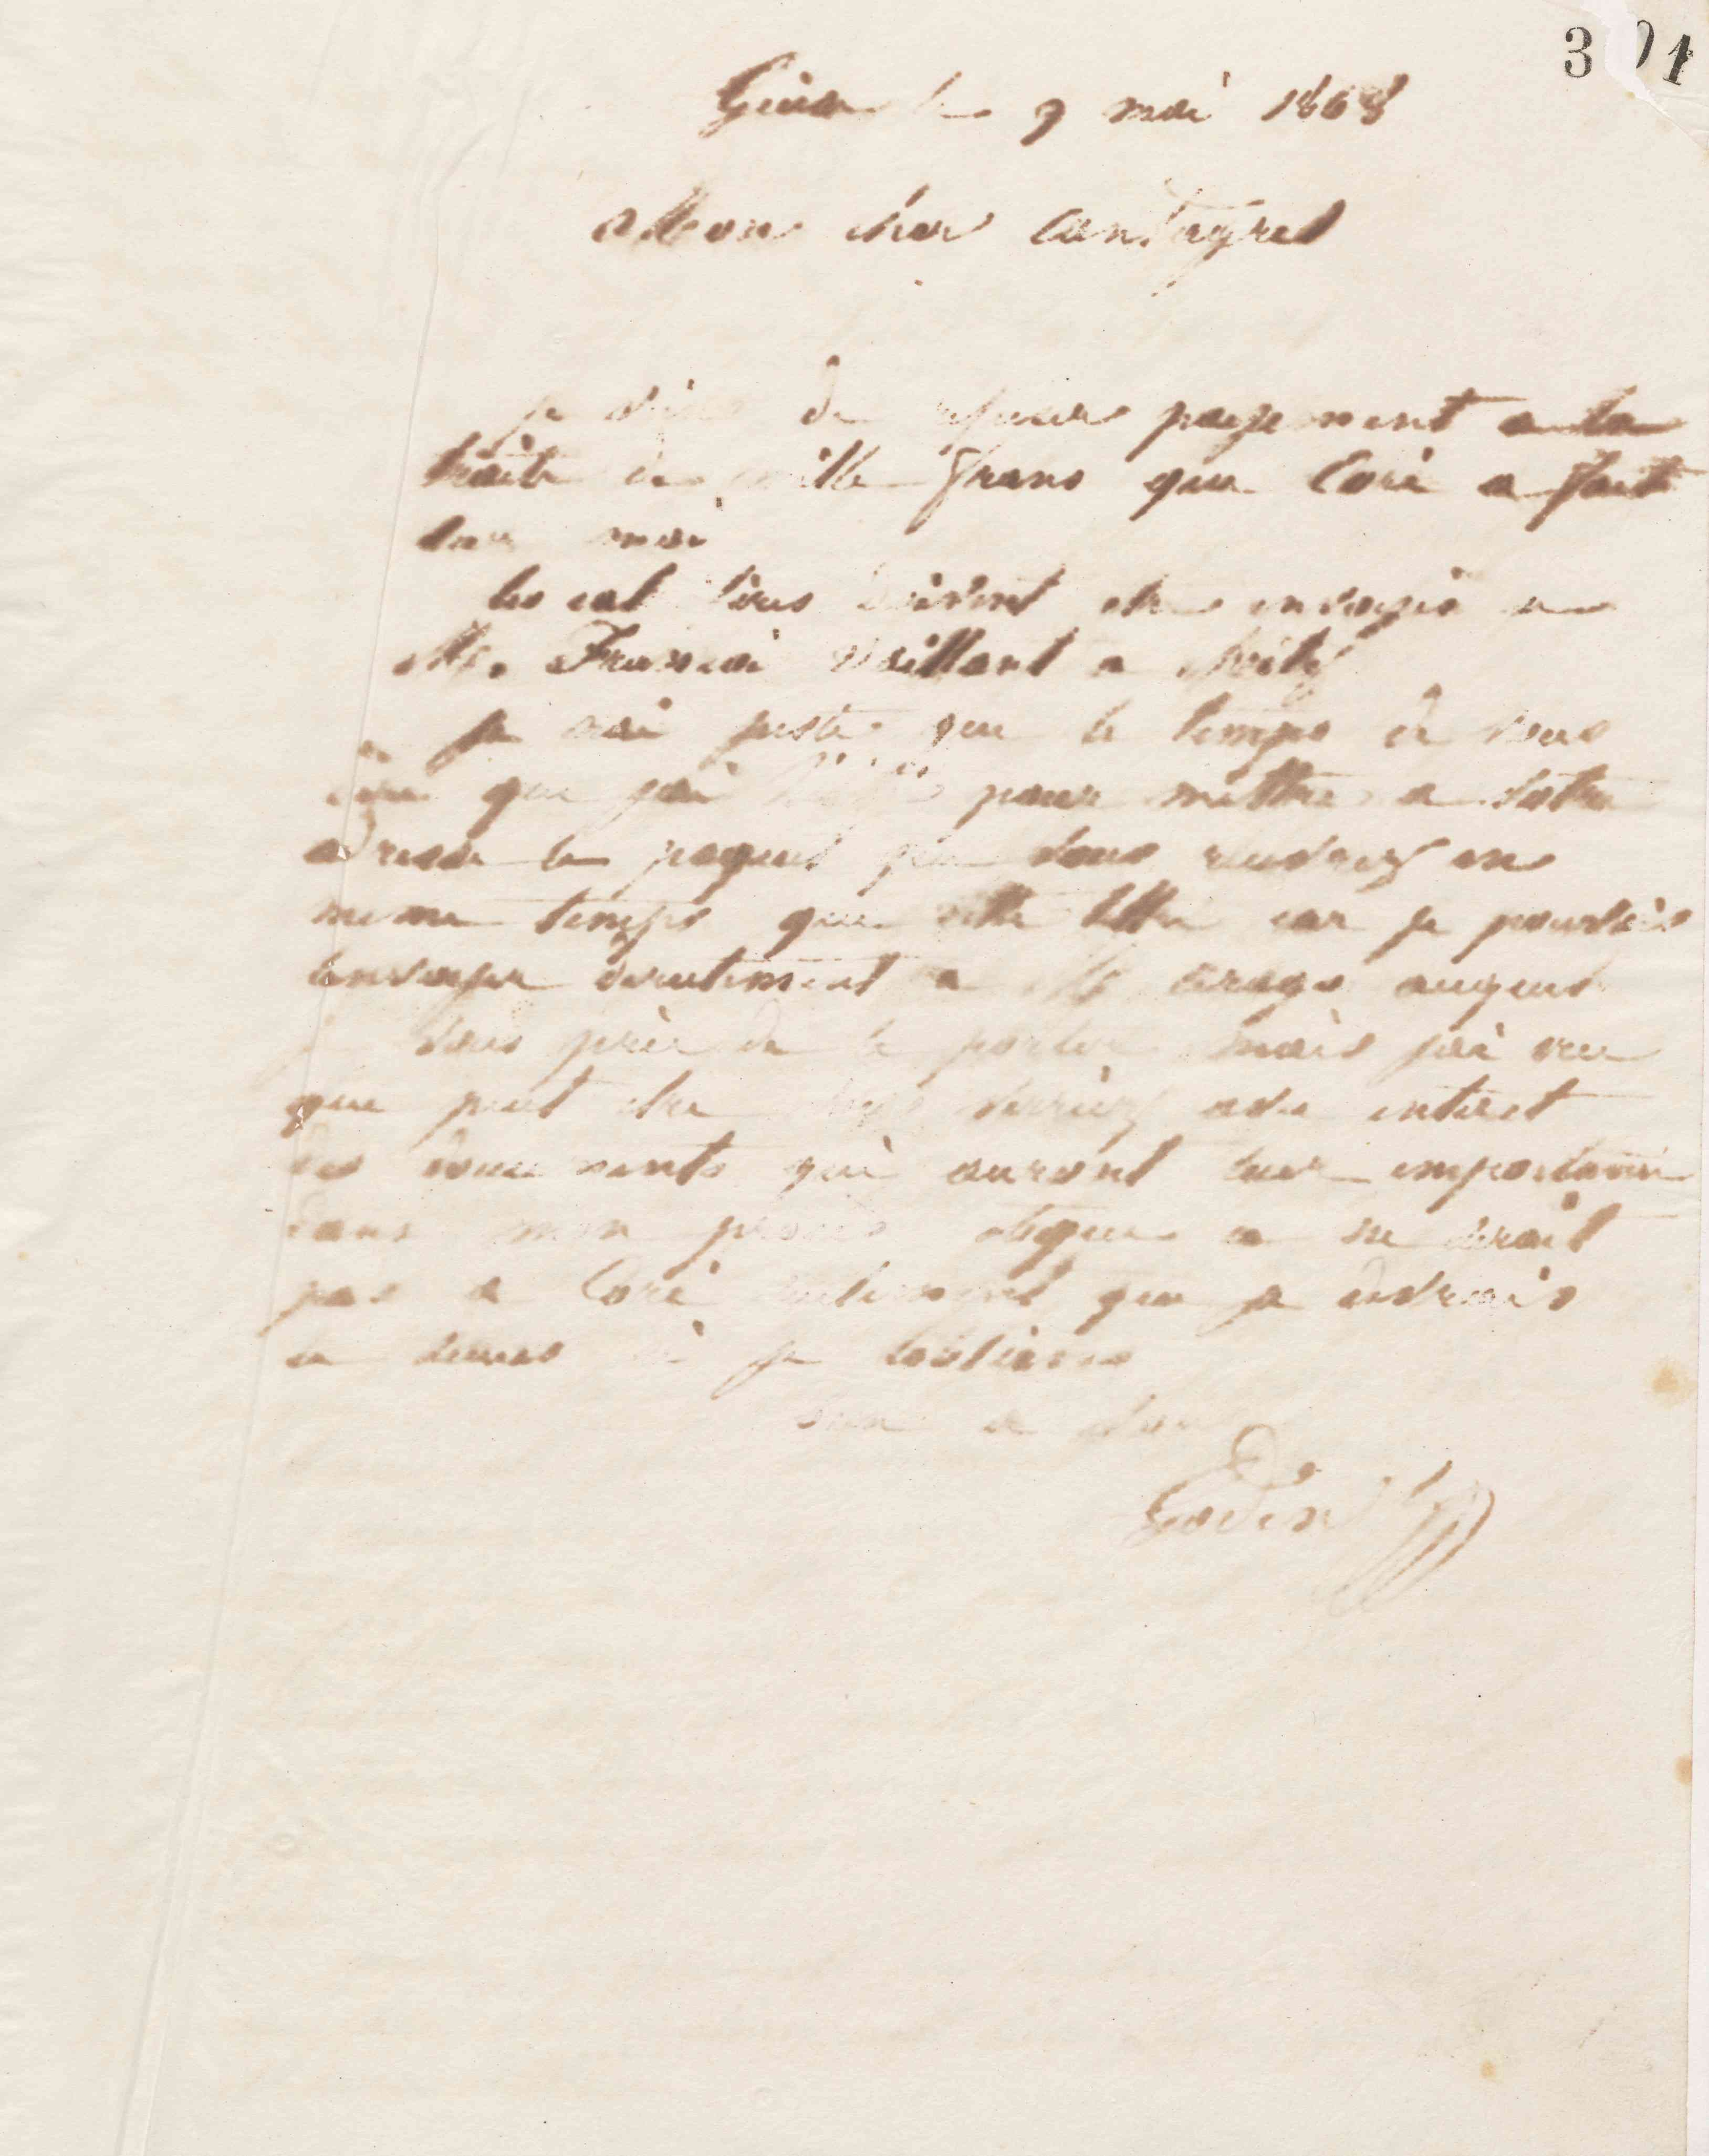 301
Guise le 9 mai 1868
Mon cher Cantagrel
je viens de refuser payement a la
traite de mille frans que Coré a fait
sur moi
les cal doivent etre envoyé a
Mr. Francoi Vaillant a
je nai juste que le temps de vous
dire que jai pour mettre a votre
adresse le paquet que vous recevrez en
meme temps que cette lettre car je pourais
lenvoyer directement a Mr arago auquel
je vous prie de le porter mais jai cru
que peut etre vous verriez avec interet
des documents qui auront leur importance
dans mon proces
pas a Coré seulement que je
je
tout a vous
Godin